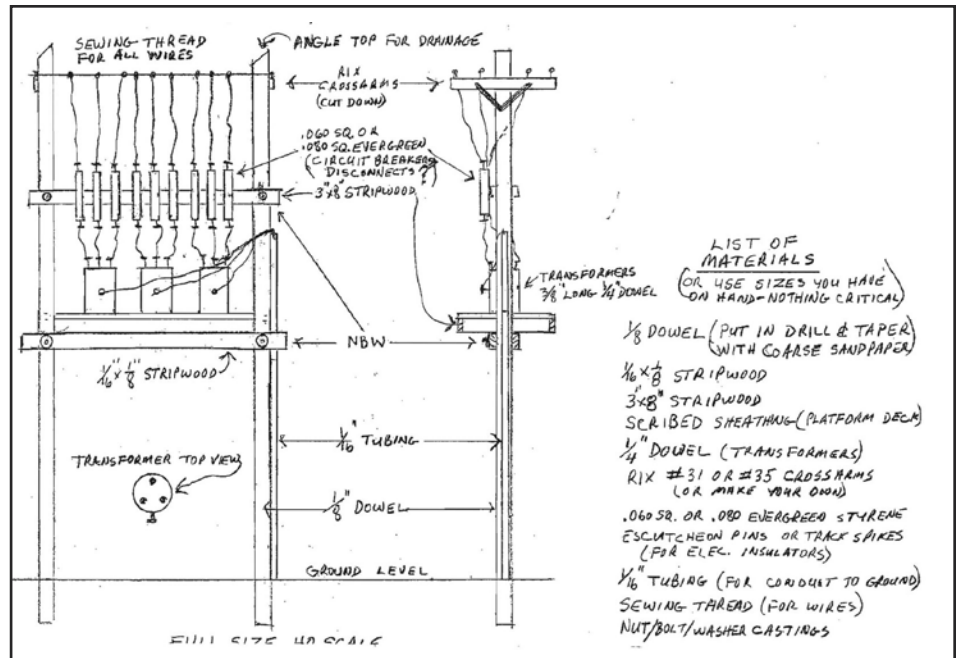 SEWING THREAD
FOR ALL WIRES
ANGLE TOP FOR DRAINAGE
RIX
CROSSARMS
(CUT DOWN)
.060 SQ. OR
.080 SQ. EVERGREEN
(CIRCUIT BREAKERS
DISCONNECTS?)
3"x8" STRIPWOOD
TRANSFORMERS
3/8" LONG 1/4" DOWEL
NBW
1/16" x 1/8" STRIPWOOD
1/16" TUBING
TRANSFORMER TOP VIEW
1/8" DOWEL
GROUND LEVEL
FULL SIZE HO SCALE
LIST OF
MATERIALS
(OR USE SIZES YOU HAVE
ON HAND-NOTHING CRITICAL)
1/8 DOWEL (PUT IN DRILL & TAPER
WITH COARSE SANDPAPER)
1/16 x 1/8 STRIPWOOD
3"x8" STRIPWOOD
SCRIBED SHEATHNG (PLATFORM DECK)
1/4" DOWEL (TRANSFORMERS)
RIX #31 OR #35 CROSSARMS
(OR MAKE YOUR OWN)
.060 SQ. OR .080 EVERGREEN STYRENE
ESCUTCHEON PINS OR TRACK SPIKES
(FOR ELEC. INSULATORS)
1/16" TUBING (FOR CONDUIT TO GROUND)
SEWING THREAD (FOR WIRES)
NUT/BOLT/WASHER CASTINGS